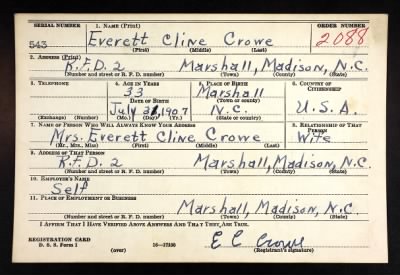 SERIAL NUMBER 1. NAME (Print) ORDER NUMBER
543 Everett Cline Crowe 2088
(First) (Middle) (Last)
2. ADDRESS (Print)
R.F.D. 2 Marshall, Madison, N.C.
(Number and street or R. F. D. number) (Town) (County) (State)
3. TELEPHONE 4. AGE IN YEARS 5. PLACE OF BIRTH 6. COUNTRY OF CITIZENSHIP
33 Marshall
DATE OF BIRTH
July 1907 N.C. U.S.A.
(Exchange) (Number) (Mo.) (Day) (Yr.) (State or country)
7. NAME OF PERSON WHO WILL ALWAYS KNOW YOUR ADDRESS 8. RELATIONSHIP OF THAT PERSON
Mrs. Everett Cline Crowe Wife
(Mr., Mrs., Miss) (First) (Middle) (Last)
9. ADDRESS OF THAT PERSON
R.F.D. 2 Marshall, Madison, N.C.
(Number and street or R. F. D. number) (Town) (County) (State)
10. EMPLOYER'S NAME
Self
11. PLACE OF EMPLOYMENT OR BUSINESS
Marshall, Madison, N.C.
(Number and street or R. F. D. number) (Town) (County) (State)
I AFFIRM THAT I HAVE VERIFIED ABOVE ANSWERS AND THAT THEY ARE TRUE.
REGISTRATION CARD E C Crowe
D. S. S. Form 1 (over) 16—17105 (Registrant's signature)